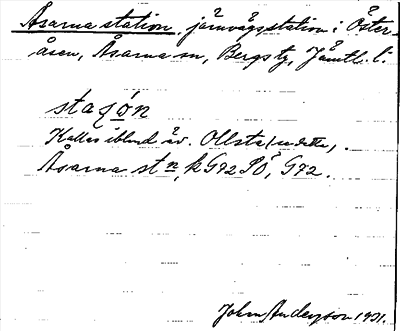 Åsarna station, järnvägsstation i Öster-
åsen, Åsarna sn, Bergs tg, Jämtl. l.
staʃo̱n
Kallas ibland äv. Ollsta (se detta),
Åsarna stn, k G92 SÖ, G92.
John Andersson 1931.